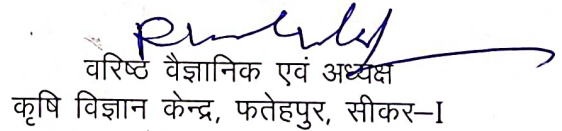 वरिष्ठ वैज्ञानिक एवं अध्यक्ष
कृषि विज्ञान केन्द्र, फतेहपुर, सीकर–I